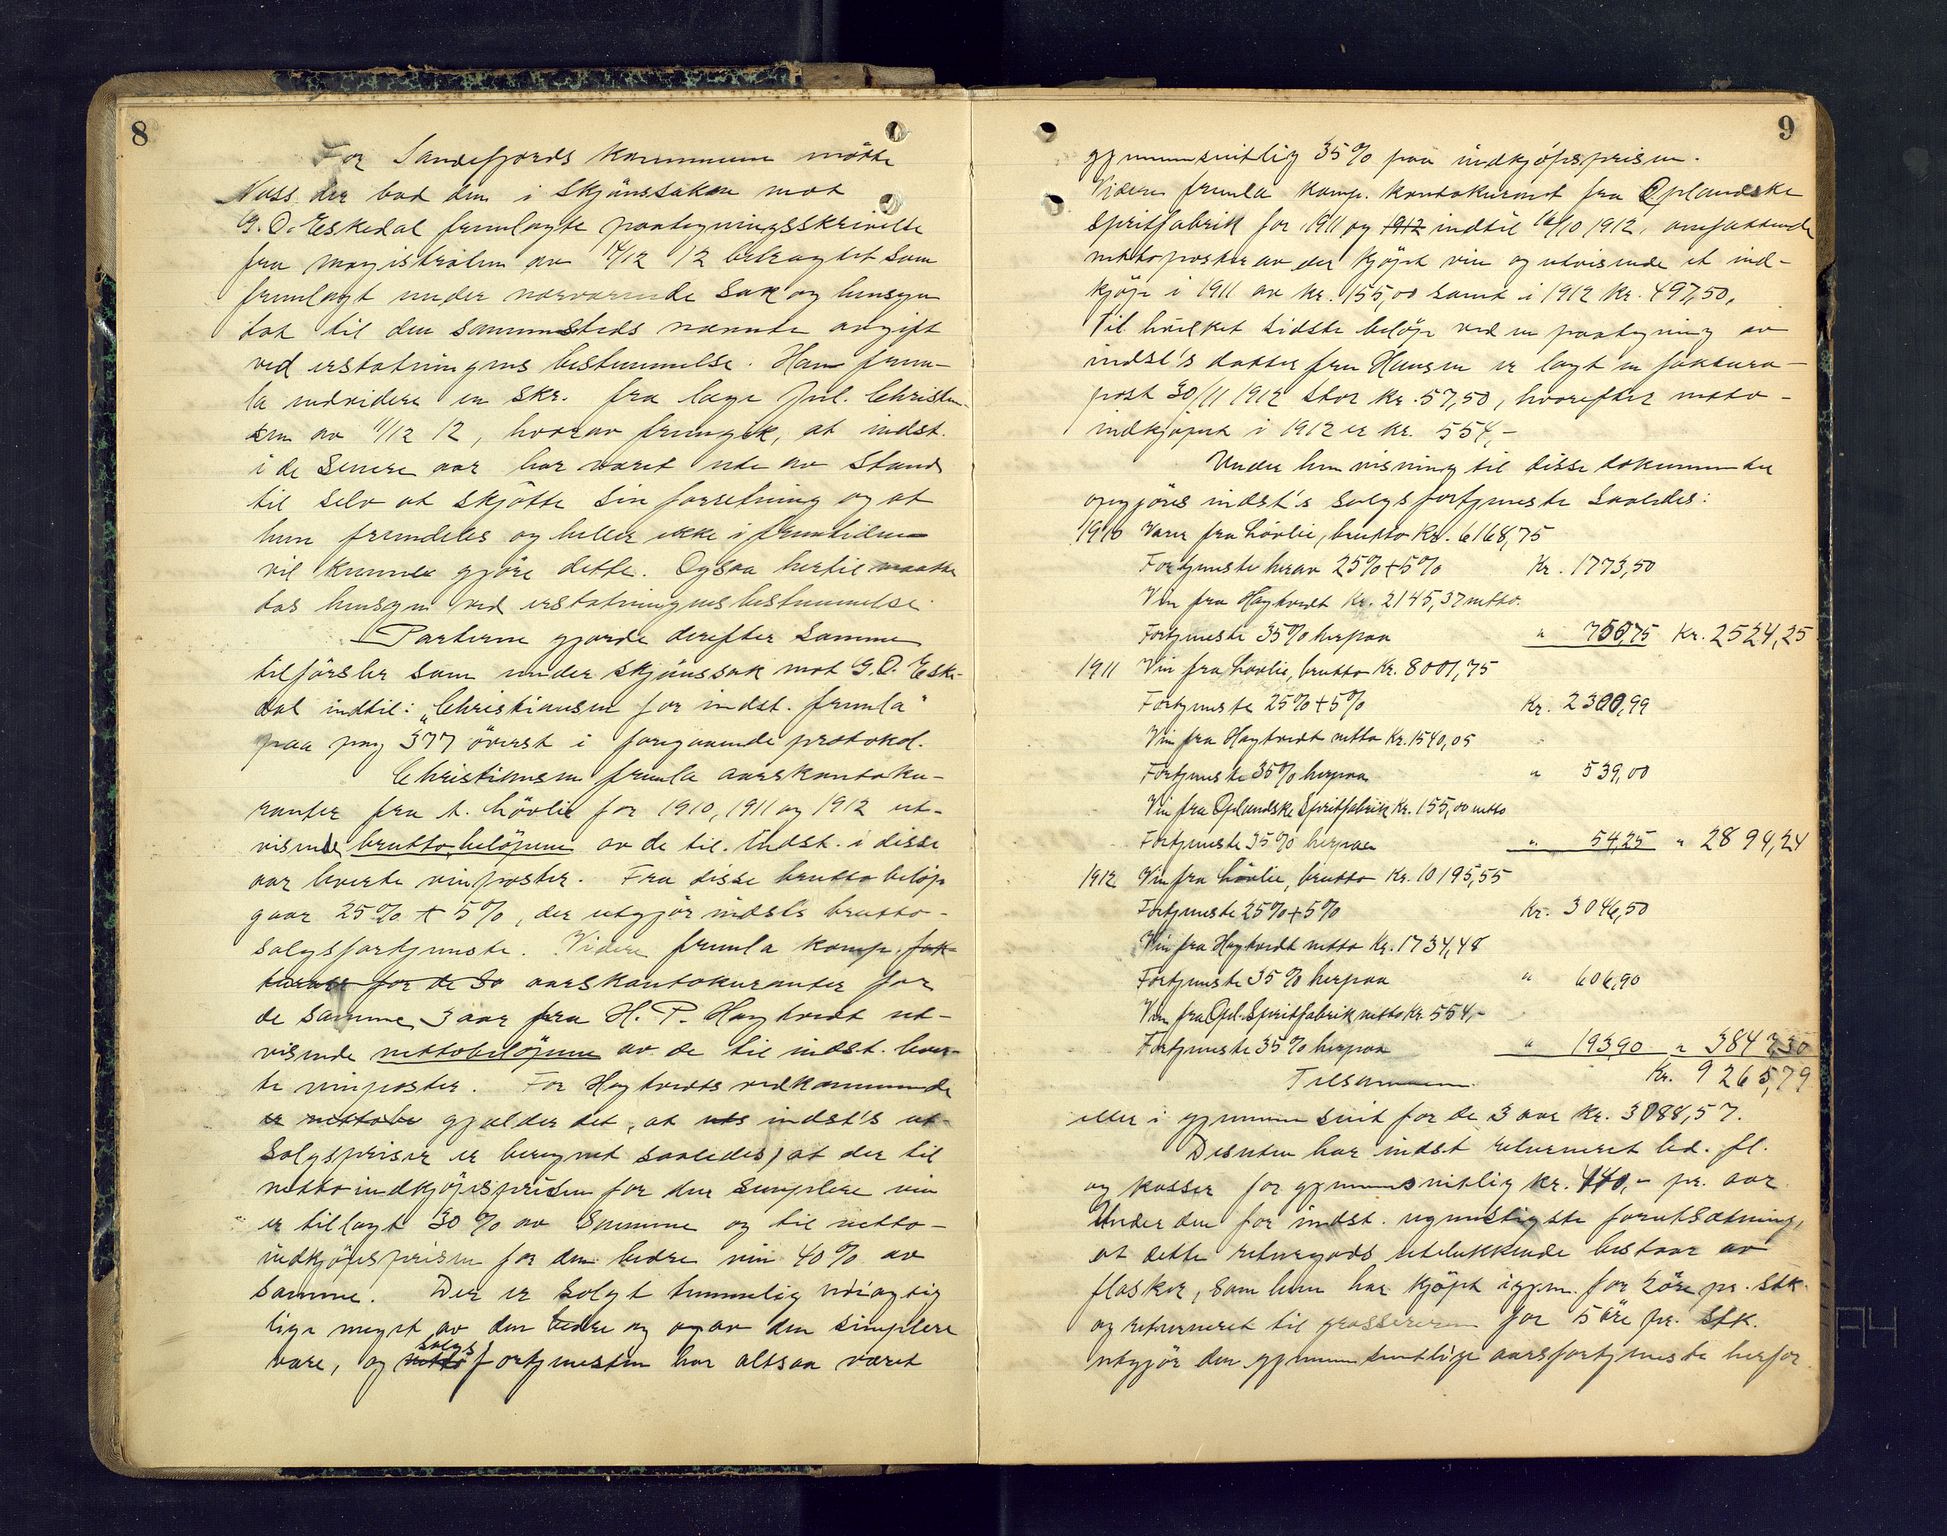 8
For Sandefjords kommune møtte
Nass der bad den i skjønssaken mot
G. O. Eskedal fremlagte paategningsskrivelse
fra magistraten av 14/12 12 betragtet som
fremlagt under nærværende sak og hensyn
tat til den sammesteds nævnte avgift
ved erstatningens bestemmelse. Han frem-
la endvidere en skr. fra læge Jul. Christen-
sen av 11/12 12, hvorav fremgik, at indst.
i de senere aar har været ute av stand
til selv at skjøtte sin forretning og at
hun fremdeles og heller ikke i fremtiden
vil kunne gjøre dette. Ogsaa hertil maatte
tas hensyn ved erstatningens bestemmelse.
Parterne gjorde derefter samme
tilførsler som under skjønssak mot G. O. Eske-
dal indtil: „Christiansen for indst. fremla"
paa pag 377 øverst i foregaaende protokol.
Christiansen fremla aarskontoku-
ranter fra A. Løvlie for 1910, 1911 og 1912 ut-
visende bruttobeløpene av de til indst. i disse
aar leverte vinposter. Fra disse bruttobeløp
gaar 25% + 5%, der utgjør indst's brutto-
salgsfortjeneste. Videre fremla komp. fak-
turaer for de 30 aarskontokuranter for
de samme 3 aar fra H. P. Hagtvedt ut-
visende nettobeløpene av de til indst. lever-
te vinposter. For Hagtvedts vedkommende
er nettobe gjælder det, at uts indst's ut-
salgspriser er beregnet saaledes, at der til
netto indkjøpsprisen for den simplere vin
er tillagt 30% av samme og til netto-
indkjøpsprisen for den bedre vin 40% av
samme. Der er solgt temmelig nøiagtig
like meget av den bedre og av den simplere
vare, og netto salgsfortjenesten har altsaa været
9
gjennemsnitlig 35% paa indkjøpsprisen.
Videre fremla komp. kontokurant fra Oplandske
Spritfabrik for 1911 og 1912 indtil 16/10 1912, omfattende
nettoposter av der kjøpt vin og utvisende et ind-
kjøp i 1911 av kr. 155,00 samt i 1912 kr. 497,50,
til hvilket sidste beløp ved en paategning av
indst's datter fru Hansen er lagt en faktura-
post 30/11 1912 stor kr. 57,50, hvorefter netto-
indkjøpet i 1912 er kr. 554,-
Under henvisning til disse dokumenter
opgjøres indst's salgsfortjeneste saaledes:
1910 Varer fra Løvlie, brutto Kr. 6168,75
Fortjeneste herav 25% + 5% Kr. 1773,50
Vin fra Hagtvedt Kr. 2145,37 netto.
Fortjeneste 35% herpaa " 750,75 Kr. 2524,25
1911 Vin fra Løvlie, brutto Kr. 8001,75
Fortjeneste 25% + 5% Kr. 2300,99
Vin fra Hagtvedt netto Kr. 1540,05
Fortjeneste 35% herpaa " 539,00
Vin fra Oplandske Spritfabrik Kr. 155,00 netto
Fortjeneste 35% herpaa " 54,25 " 2894,24
1912 Vin fra Løvlie, brutto Kr. 10195,55
Fortjeneste 25% + 5% Kr. 3046,50
Vin fra Hagtvedt netto Kr. 1734,48
Fortjeneste 35% herpaa " 606,90
Vin fra Opl. Spritfabrik netto Kr. 554,-
Fortjeneste 35% herpaa " 193,90 " 3847,30
Tilsammen Kr. 9265,79
eller i gjennemsnit for de 3 aar Kr. 3088,57.
Desuten har indst returneret led. fl.
og kasser for gjennemsnitlig kr. 440,- pr. aar.
Under den for indst. ugunstigste forutsætning,
at dette returgods utelukkende bestaar av
flasker, som hun har kjøpt igjen for 2 øre pr. stk.
og returneret til grossereren for 5 øre pr. stk.
utgjør den gjennemsnitlige aarsfortjeneste herfor